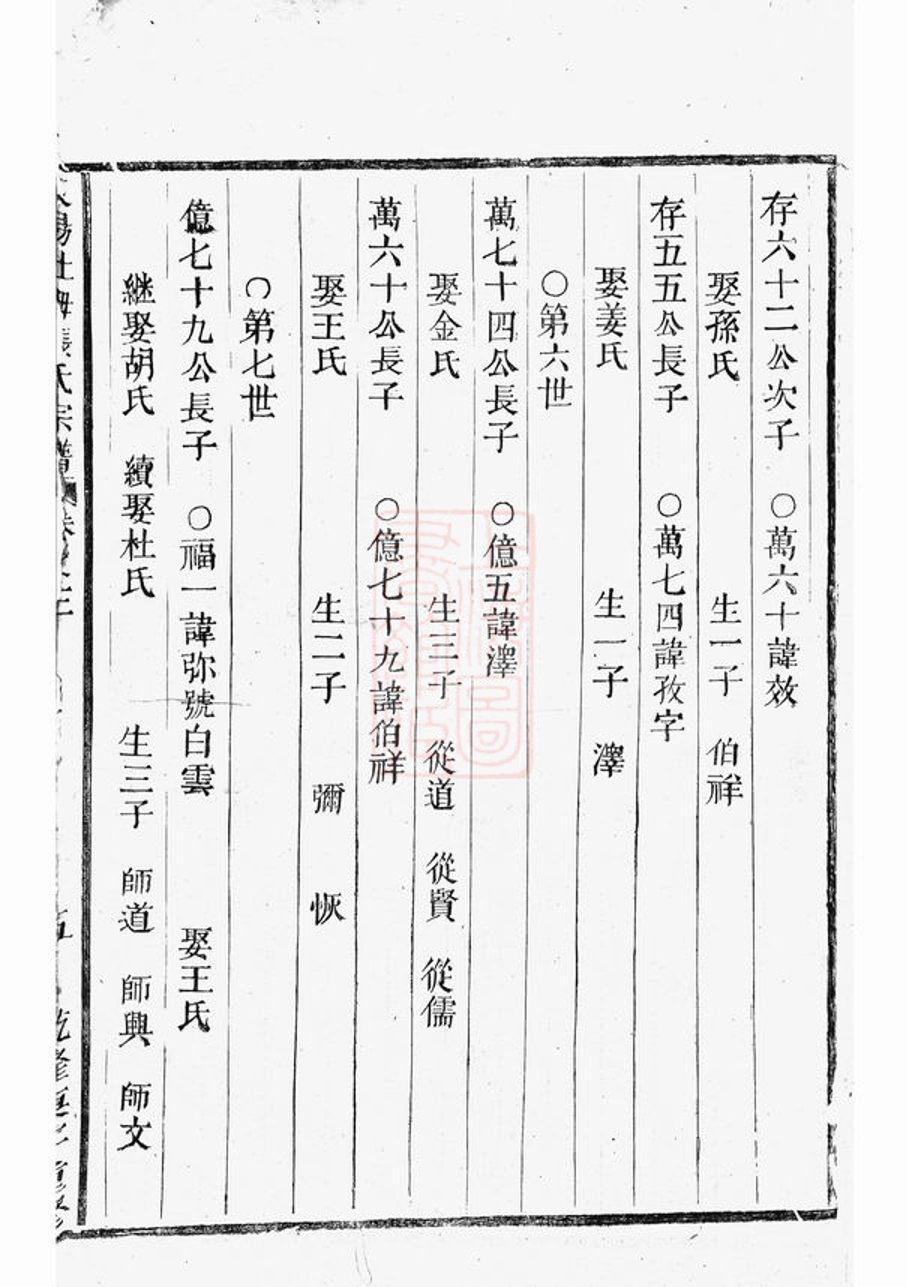 存六十二公次子　○萬六十諱效
娶孫氏　生一子　伯祥
存五五公長子　○萬七四諱孜字
娶姜氏　生一子　澤
○第六世
萬七十四公長子　○億五諱澤
娶金氏　生三子　從道　從賢　從儒
萬六十公長子　○億七十九諱伯祥
娶王氏　生二子　彌　恢
○第七世
億七十九公長子　○福一諱弥號白雲　娶王氏
継娶胡氏　續娶杜氏　生三子　師道　師興　師文
氏宗譜